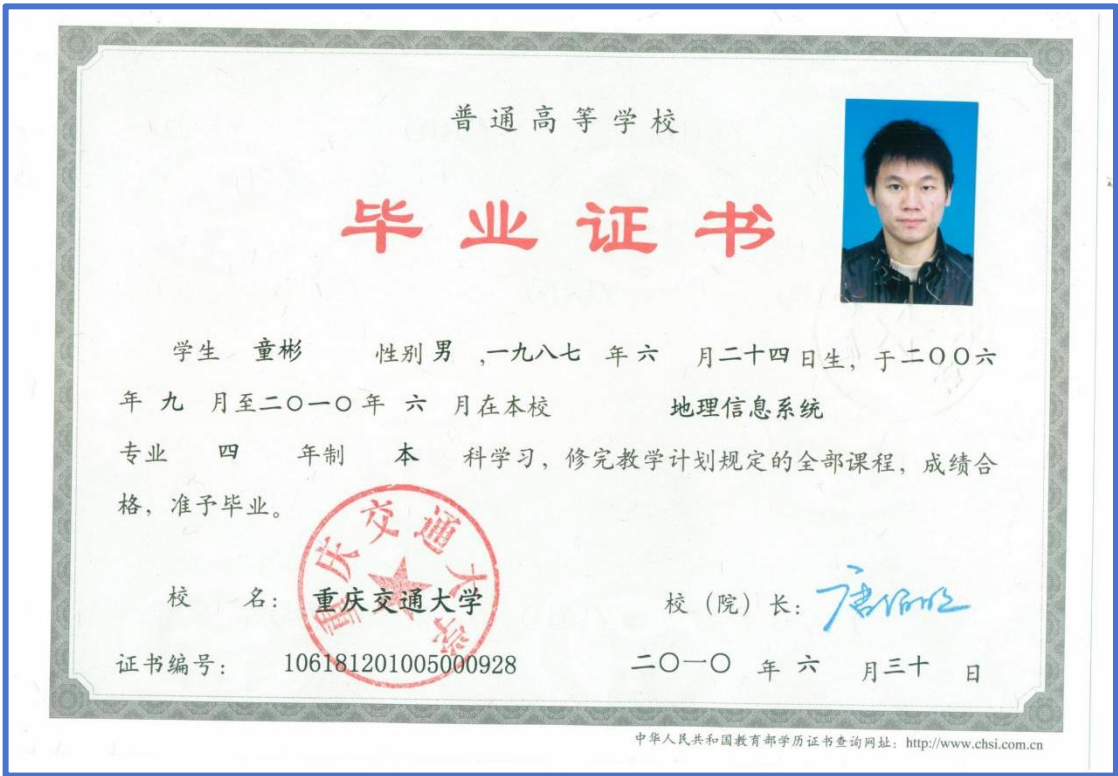 普通高等学校
毕业证书
学生 童彬 性别 男 ,一九八七 年 六 月二十四日生，于二〇〇六
年 九 月至二〇一〇年 六 月在本校 地理信息系统
专业 四 年制 本 科学习，修完教学计划规定的全部课程，成绩合
格，准予毕业。
重庆交通大学
校 名： 重庆交通大学 校（院）长：唐伯明
证书编号： 106181201005000928 二〇一〇 年 六 月三十 日
中华人民共和国教育部学历证书查询网址：http://www.chsi.com.cn